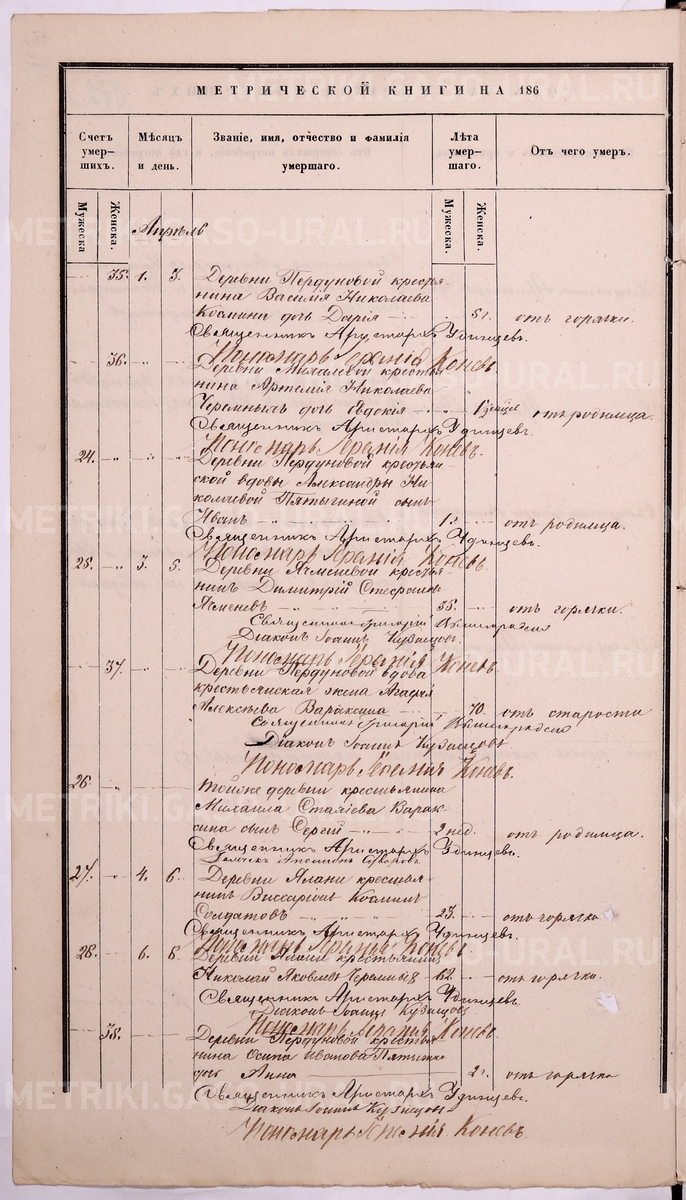 МЕТРИЧЕСКОЙ КНИГИ НА 186
Счетъ умершихъ. Мѣсяцъ и день. Званіе, имя, отчество и фамилія умершаго. Лѣта умершаго. Отъ чего умеръ.
Мужеска Женска. Мужеска. Женска.
Апрѣль
35. 1. 3. Деревни Пердуновой крестья
нина Василія Николаева
Космина дочь Дарія 5 г. отъ горячки.
Священникъ Аристархъ Удинцевъ.
Пономарь Коневъ.
36. " " Деревни крестья
нина Артемія Николаева
Черемныхъ дочь Евдокія отъ родимца.
Священникъ Аристархъ Удинцевъ.
Пономарь Коневъ.
24. " " " Деревни Пердуновой крестьян
ской вдовы Александры Ни
колаевой Пятыгиной сынъ
Иванъ 1 г. отъ родимца.
Священникъ Аристархъ Удинцевъ.
Пономарь Коневъ.
25. " 3. 5. Деревни Ячменевой крестья
нинъ Димитрій Стефановъ
Ячменевъ 35. отъ горячки.
Священникъ Григорій
Діаконъ Іоаннъ Кузнецовъ.
Пономарь Коневъ.
37. Деревни Пердуновой вдова
крестьянская жена Агафія
Алексѣева Вараксина 70. отъ старости
Священникъ Григорій
Діаконъ Іоаннъ Кузнецовъ
Пономарь Коневъ.
26. " Тойже деревни крестьянина
Михаила Варак
сина сынъ Сергій 2 нед. отъ родимца.
Священникъ Аристархъ Удинцевъ.
27. " 4. 6. Деревни Ялани крестья
нинъ Виссаріонъ Косминъ
Солдатовъ 23. отъ горячки
Священникъ Аристархъ Удинцевъ.
Пономарь Коневъ
28. 6. 8. Деревни Ялани крестьянинъ
Николай Яковлевъ Черемныхъ 62. отъ горячки.
Священникъ Аристархъ Удинцевъ
Діаконъ Іоаннъ Кузнецовъ
Пономарь Коневъ.
38. Деревни Пердуновой крестья
нина Осипа Иванова
дочь Анна 2 г. отъ горячки
Священникъ Аристархъ Удинцевъ.
Діаконъ Іоаннъ Кузнецовъ
Пономарь Коневъ.